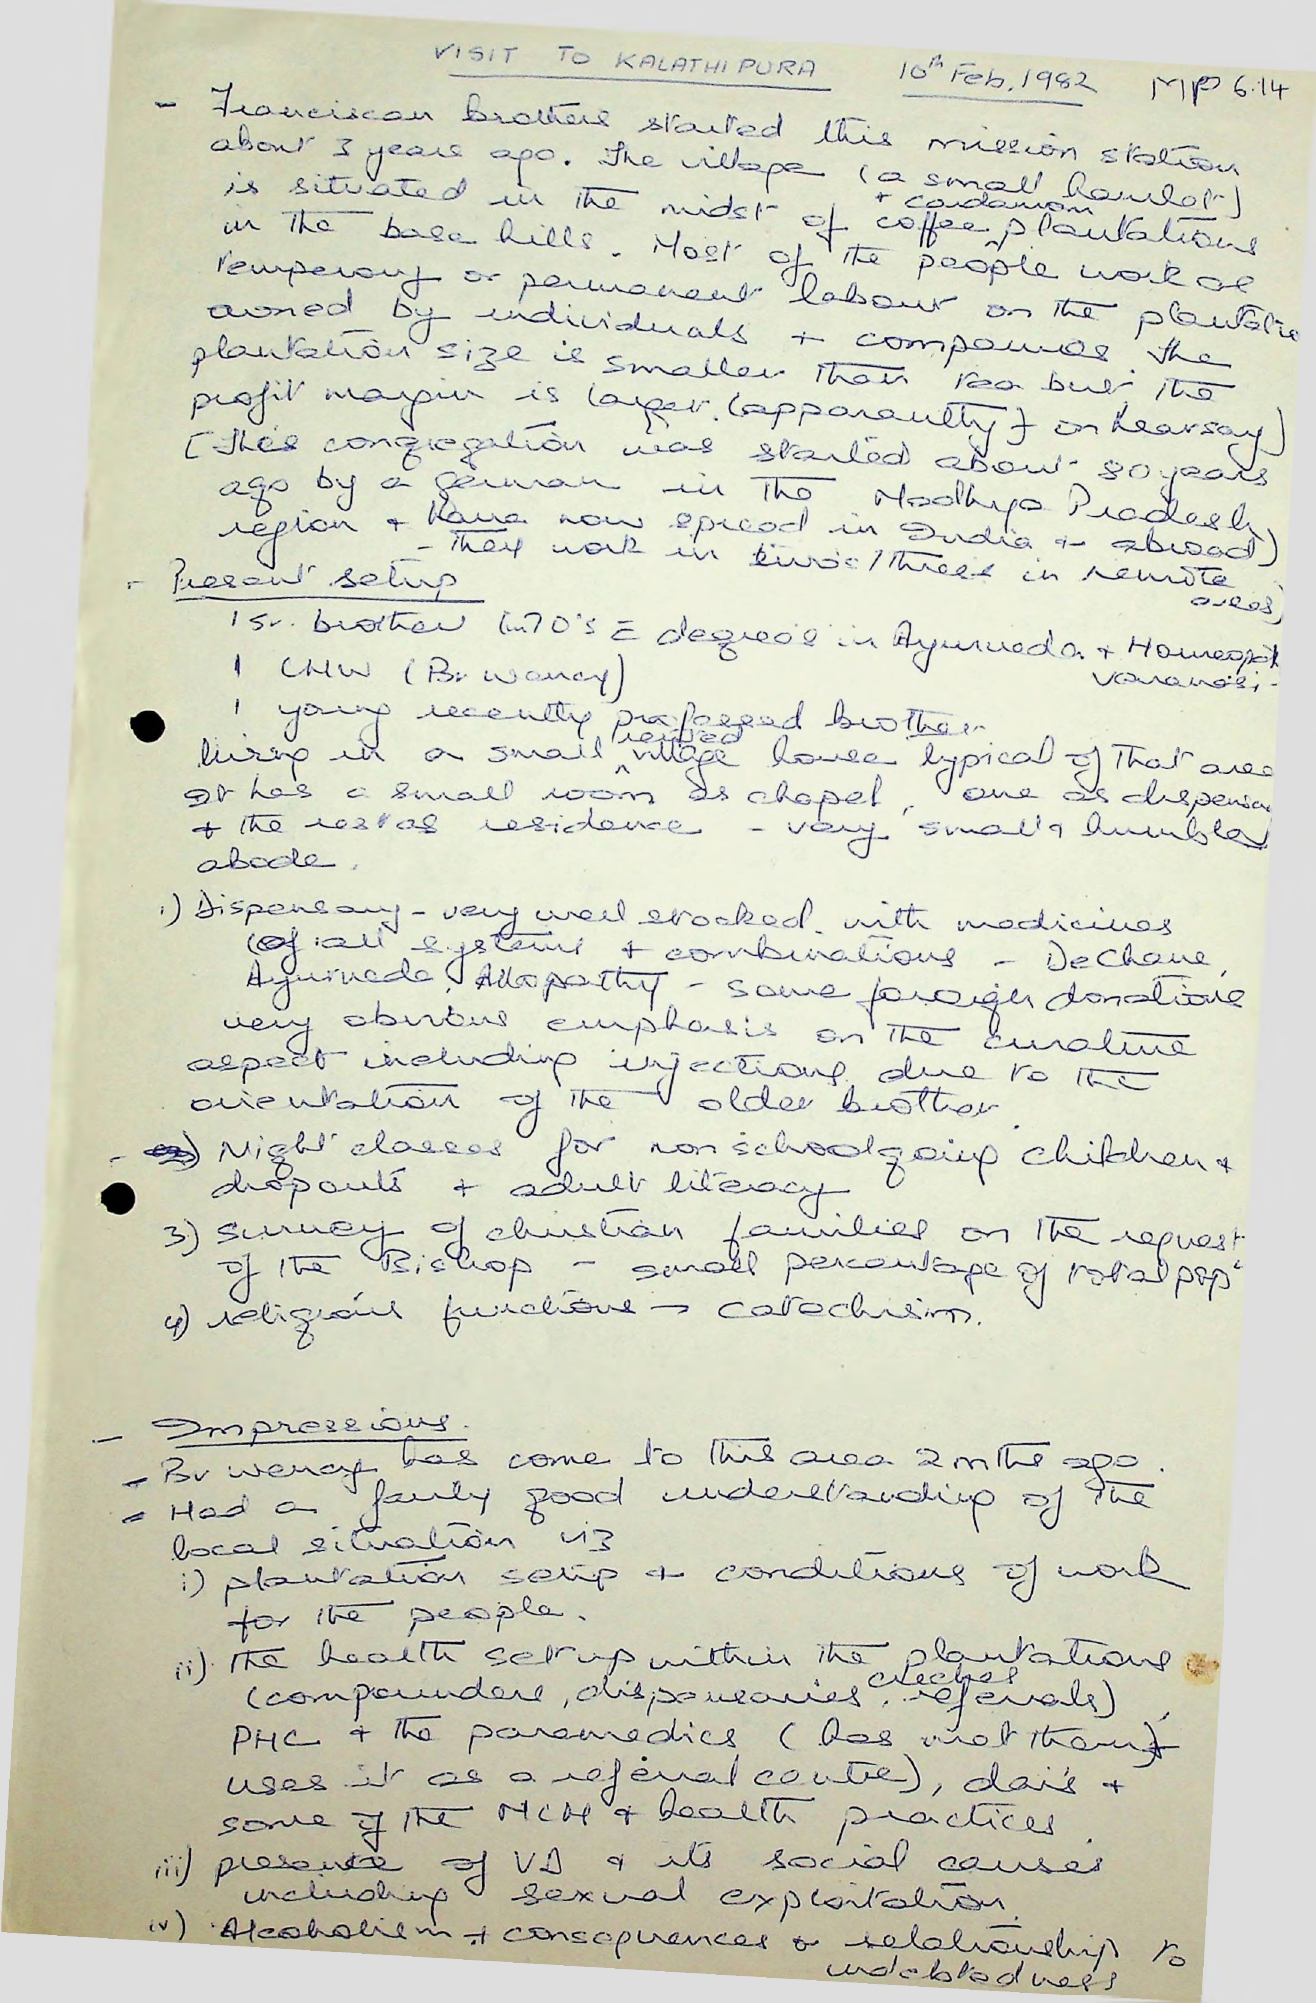 VISIT TO KALATHIPURA 10th Feb, 1982 MP 6.14
- Franciscan brothers started this mission station
about 3 years ago. The village (a small hamlet)
is situated in the midst of coffee + cardamom plantations
in the base hills. Most of the people work as
temperory or permanent labour on the plantatio
owned by individuals + companies. The
plantation size is smaller than tea but the
profit margin is larger. (apparently) on hearsay)
(This congregation was started about 80 years
ago by a German in the Madhya Pradesh
region + have now spread in India + abroad)
- They work in twos/threes in remote
areas)
- Present setup
1 Sr. brother (in 70's c degrees in Ayurveda + Homeopath
Varanasi -
1 CHW (Br Wency)
1 young recently professed brother
living in a small rented village house typical of that area
It has a small room as chapel, one as dispensa
+ the rest as residence - very small + humble
abode.
1) Dispensary - very well stocked with medicines
(of all systems + combinations - Dechane,
Ayurveda, Allopathy - some foreign donations
very obvious emphasis on the curative
aspect including injections due to the
orientation of the older brother
- 2) Night classes for non schoolgoing children +
dropouts + adult literacy
3) Survey of christian families on the request
of the Bishop - small percentage of total popn
4) religious functions → catechism.
- Impressions.
- Br Wency has come to this area 2 mths ago.
- Had a fairly good understanding of the
local situation viz
i) plantation setup + conditions of work
for the people.
ii) the health set up within the plantations
(compounders, dispensaries, creches, referrals)
PHC + the paramedics (has met them +
uses it as a referral centre), dais +
some of the MCH + health practices.
iii) presence of VD + its social causes
including sexual exploitation.
iv) Alcoholism + consequences + relationship to
indebtedness